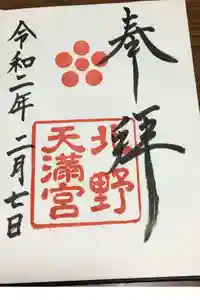 奉拝
北野
天満宮
令和二年二月七日